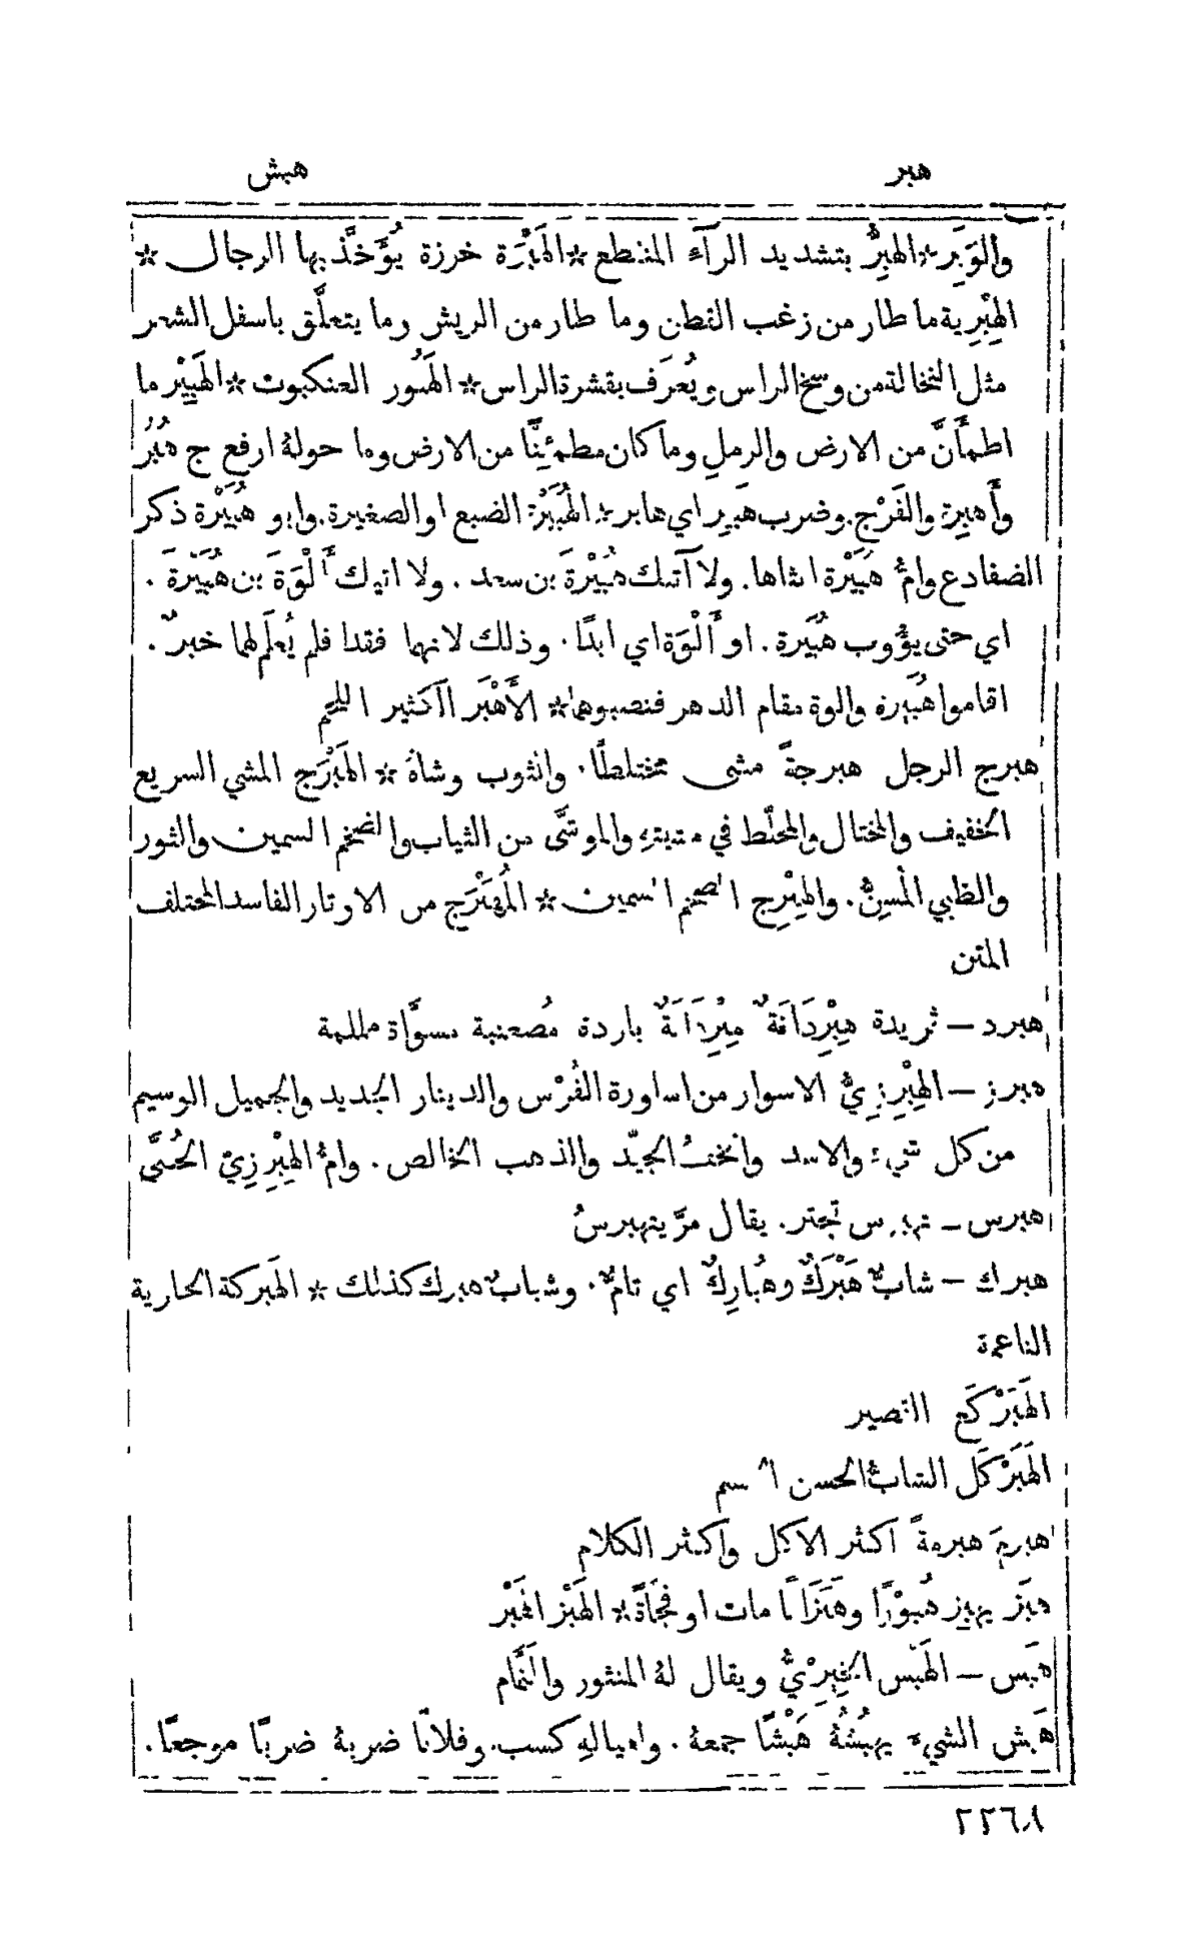 هبر
هبش
والوَبِر * الهِبِرُّ بتشديد الرآء المنقطع * الهَبْرَة خرزة يُؤَخَّذ بها الرجال *
الهِبْرِية ما طار من زغب القطن وما طار من الريش وما يتعلَّق باسفل الشعر
مثل النخالة من وسخ الراس ويُعرَف بقشرة الراس * الهَبُّور العنكبوت * الهَبِيْر ما
اطمأَنَّ من الارض والرمل وما كان مطمئِنًّا من الارض وما حولهُ ارفع ج هُبُرٌ
وأَهبِرة والفَرْج. وضرب هبير اي هابر * الهُبَيْرَة الضبع او الصغيرة. وابو هُبَيْرة ذكر
الضفادع وامُّ هُبَيْرة انثاها. ولا آتيك هُبَيْرةَ بن سعد. ولا اتيك أَلْوَةَ بن هُبَيْرَةَ.
اي حتى يؤُوب هُبَيرة. او أَلْوَة اي ابدًا. وذلك لانهما فقدا فلم يُعلَم لهما خبرٌ.
اقاموا هُبَيرة والوة مقام الدهر فنصبوهما * الأَهْبَر الكثير اللحم
هبرج الرجل هبرجةً مشى مختلطًا. والثوب وشاهُ * الهَبْرَج المشي السريع
الخفيف والمختال والمخلّط في مشيتهِ والموشَّى من الثياب والضخم السمين والثور
والظبي المُسِنُّ. والهِبْرِج الضخم السمين * المُهَبْرَج من الاوتار الفاسد المختلف
المتن
هبرد — ثريدة هِبْرِدَانَةٌ مِبْرِدَانَةٌ باردة مُصعنبة مسوَّاة مللمة
هبرز — الهِبْرِزِيُّ الاسوار من اساورة الفُرْس والدينار الجديد والجميل الوسيم
من كل شيءٍ والاسد والخفُّ الجيّد والذهب الخالص. وامُّ الهِبْرِزِيّ الحُمَّى
هبرس — تهبرس تبختر. يقال مرَّ يتهبرسُ
هبرك — شابٌّ هَبْرَكٌ وهُبارِكٌ اي تامٌّ. وشباب هبرك كذلك * الهَبركة الجارية
الناعمة
الهَبَرْكَع القصير
الهَبَرْكَل الشابُّ الحسن الجسم
هبرمَ هبرمةً اكثر الاكل واكثر الكلام
هبَز يهبِز هُبُوْزًا وهَبَزَانًا مات او فَجْأَةً * الهَبْز الهَبْر
هبَس — الهَبْس الخِيْرِيُّ ويقال لهُ المنثور والنَّمَّام
هَبش الشيءَ يهبُشهُ هَبْشًا جمعهُ. ولعيالهِ كسب. وفلانًا ضربهُ ضربًا موجعًا.
٢٢٦٨